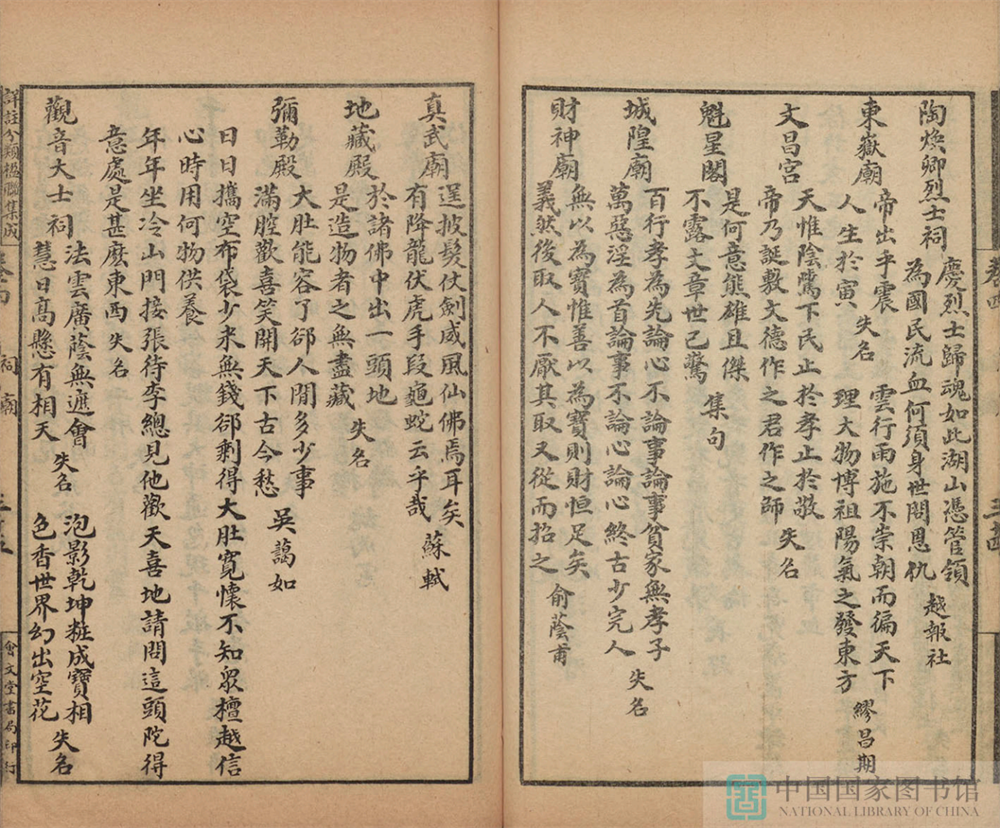 陶煥卿烈士祠
慶烈士歸魂如此湖山憑管領
為國民流血何須身世問恩仇
越報社
東嶽廟
帝出乎震
人生於寅
失名
雲行雨施不崇朝而徧天下
理大物博祖陽氣之發東方
繆昌期
文昌宮
天惟陰騭下民止於孝止於敬
帝乃誕敷文德作之君作之師
失名
魁星閣
是何意態雄且傑
不露文章世已驚
集句
城隍廟
百行孝為先論心不論事論事貧家無孝子
萬惡淫為首論事不論心論心終古少完人
失名
財神廟
無以為寶惟善以為寶則財恒足矣
義然後取人不厭其取又從而招之
俞蔭甫
卷四
真武廟
逞披髮仗劍威風仙佛焉耳矣
有降龍伏虎手段龜蛇云乎哉
蘇軾
地藏殿
於諸佛中出一頭地
是造物者之無盡藏
失名
彌勒殿
大肚能容了卻人間多少事
滿腔歡喜笑開天下古今愁
吳藹如
日日攜空布袋少米無錢卻剩得大肚寬懷不知眾檀越信
心時用何物供養
年年坐冷山門接張待李總見他歡天喜地請問這頭陀得
意處是甚麼東西
失名
觀音大士祠
法雲廣蔭無遮會
慧日高懸有相天
失名
泡影乾坤粧成寶相
色香世界幻出空花
失名
詳註分類楹聯集成
祠廟
會文堂書局印行
中国国家图书馆
NATIONAL LIBRARY OF CHINA